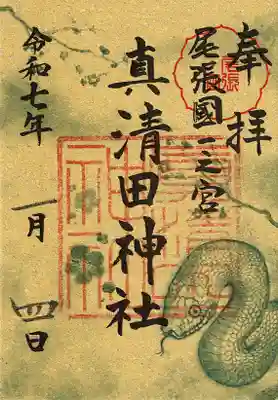 奉拝
尾張國一之宮
真清田神社
令和七年
一月
四日